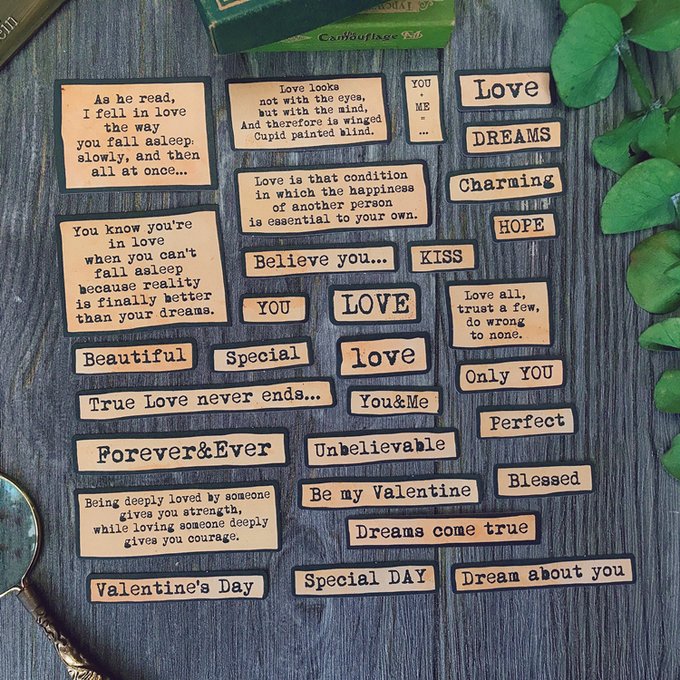 Camouflage Kit
As he read,
I fell in love
the way
you fall asleep:
slowly, and then
all at once...
Love looks
not with the eyes,
but with the mind,
And therefore is winged
Cupid painted blind.
YOU
+
ME
=
...
Love
DREAMS
Love is that condition
in which the happiness
of another person
is essential to your own.
Charming
HOPE
You know you're
in love
when you can't
fall asleep
because reality
is finally better
than your dreams.
Believe you...
KISS
YOU
LOVE
Love all,
trust a few,
do wrong
to none.
Beautiful
Special
love
Only YOU
True Love never ends...
You&Me
Perfect
Forever&Ever
Unbelievable
Blessed
Being deeply loved by someone
gives you strength,
while loving someone deeply
gives you courage.
Be my Valentine
Dreams come true
Valentine's Day
Special DAY
Dream about you